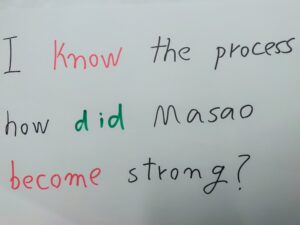 I know the process
how did Masao
become strong?